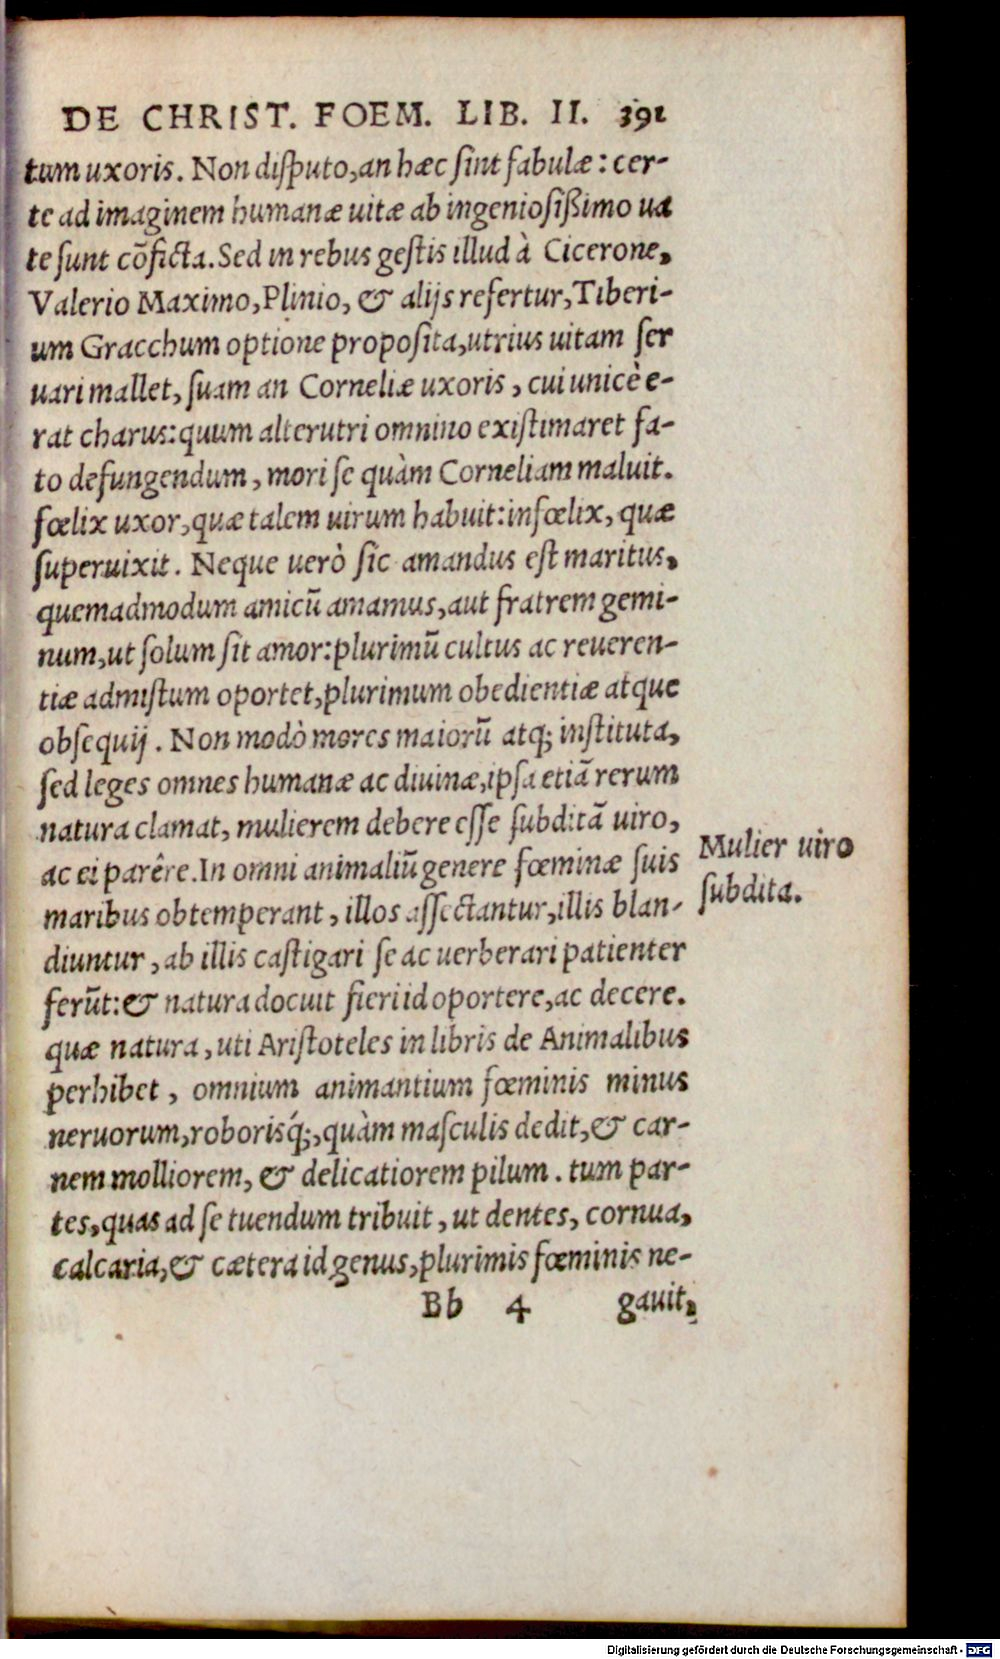 DE CHRIST. FOEM. LIB. II. 391
tum uxoris. Non disputo, an hæc sint fabulæ: cer-
te ad imaginem humanæ uitæ ab ingeniosißimo ua
te sunt cõficta. Sed in rebus gestis illud à Cicerone,
Valerio Maximo, Plinio, & alijs refertur, Tiberi-
um Gracchum optione proposita, utrius uitam ser
uari mallet, suam an Corneliæ uxoris, cui unicè e-
rat charus: quum alterutri omnino existimaret fa-
to defungendum, mori se quàm Corneliam maluit.
fœlix uxor, quæ talem uirum habuit: infœlix, quæ
superuixit. Neque uerò sic amandus est maritus,
quemadmodum amicũ amamus, aut fratrem gemi-
num, ut solum sit amor: plurimũ cultus ac reueren-
tiæ admistum oportet, plurimum obedientiæ atque
obsequij. Non modò mores maiorũ atq; instituta,
sed leges omnes humanæ ac diuinæ, ipsa etiã rerum
natura clamat, mulierem debere esse subditã uiro,
ac ei parêre. In omni animaliũ genere fœminæ suis
maribus obtemperant, illos assectantur, illis blan-
diuntur, ab illis castigari se ac uerberari patienter
ferũt: & natura docuit fieri id oportere, ac decere.
quæ natura, uti Aristoteles in libris de Animalibus
perhibet, omnium animantium fœminis minus
neruorum, roborisq́;, quàm masculis dedit, & car-
nem molliorem, & delicatiorem pilum. tum par-
tes, quas ad se tuendum tribuit, ut dentes, cornua,
calcaria, & cætera id genus, plurimis fœminis ne-
Bb 4 gauit,
Mulier uiro
subdita.
Digitalisierung gefördert durch die Deutsche Forschungsgemeinschaft - DFG